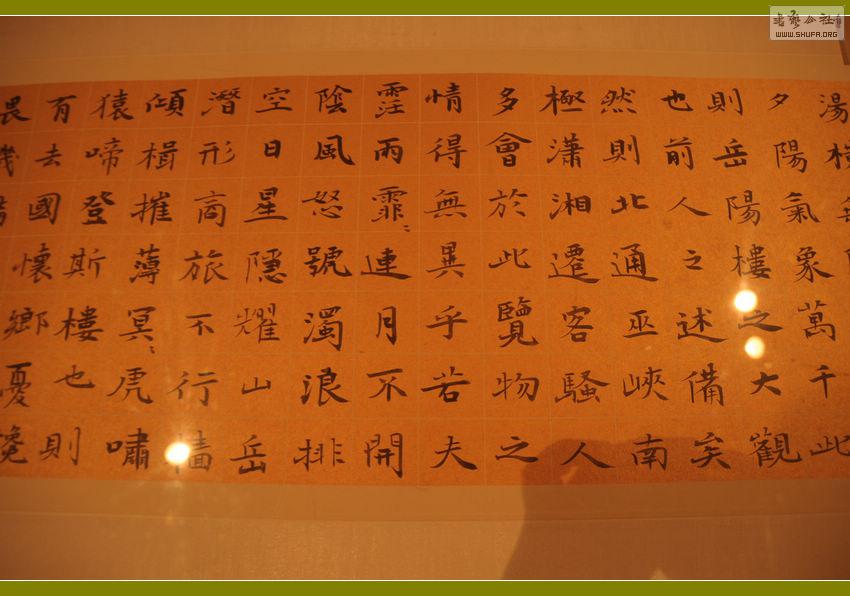 湯
夕陽氣象萬千此
則岳陽樓之大觀
也前人之述備矣
然則北通巫峽南
極瀟湘遷客騷人
多會於此覽物之
情得無異乎若夫
霪雨霏〻連月不開
陰風怒號濁浪排
空日星隱耀山岳
潛形商旅不行檣
傾楫摧薄冥〻虎嘯
猿啼登斯樓也則
有去國懷鄉憂讒
畏譏
書藝公社
WWW.SHUFA.ORG